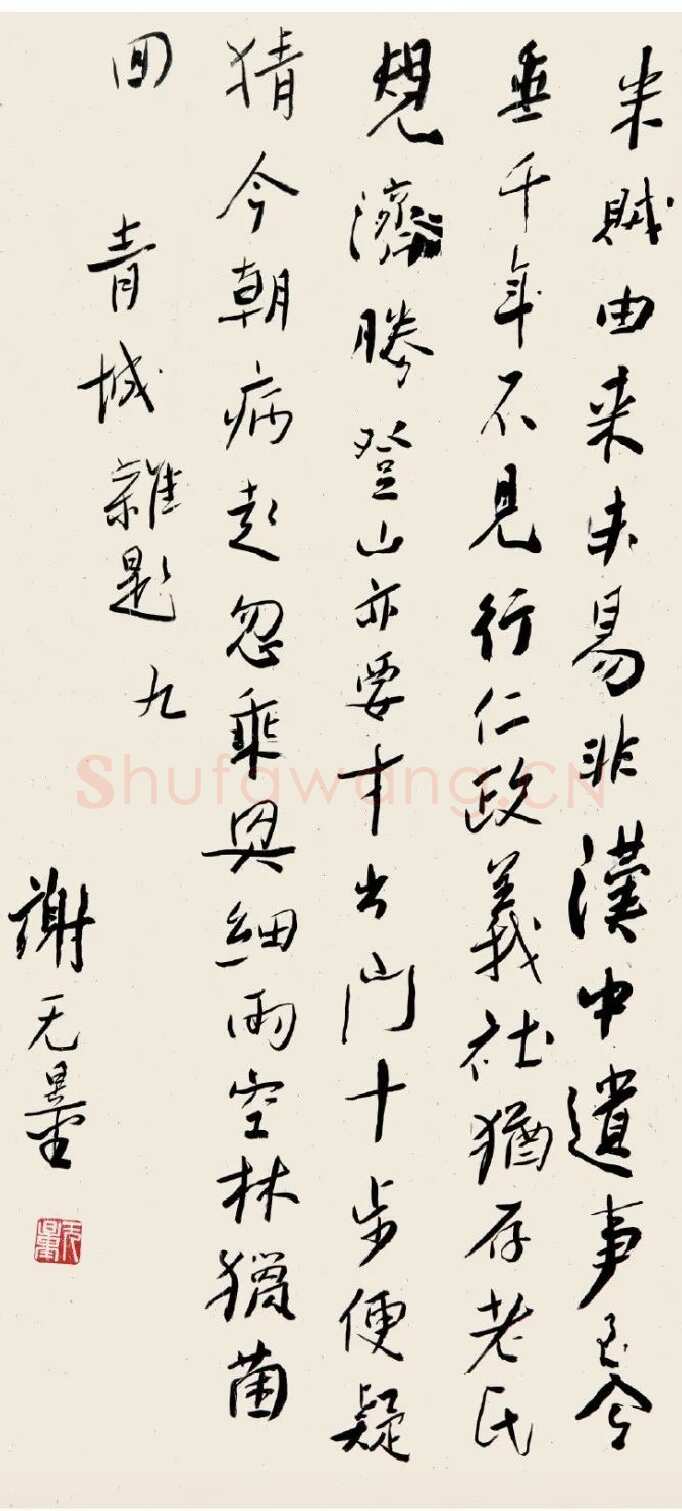 米賊由来未易非漢中遺事至今
垂千年不見行仁政義社猶存老氏
規濟勝登山亦要才出門十步便疑
猜今朝病起忽乘興細雨空林獵菌
回 青城雜題 九
謝无量
Shufawang.CN
无量